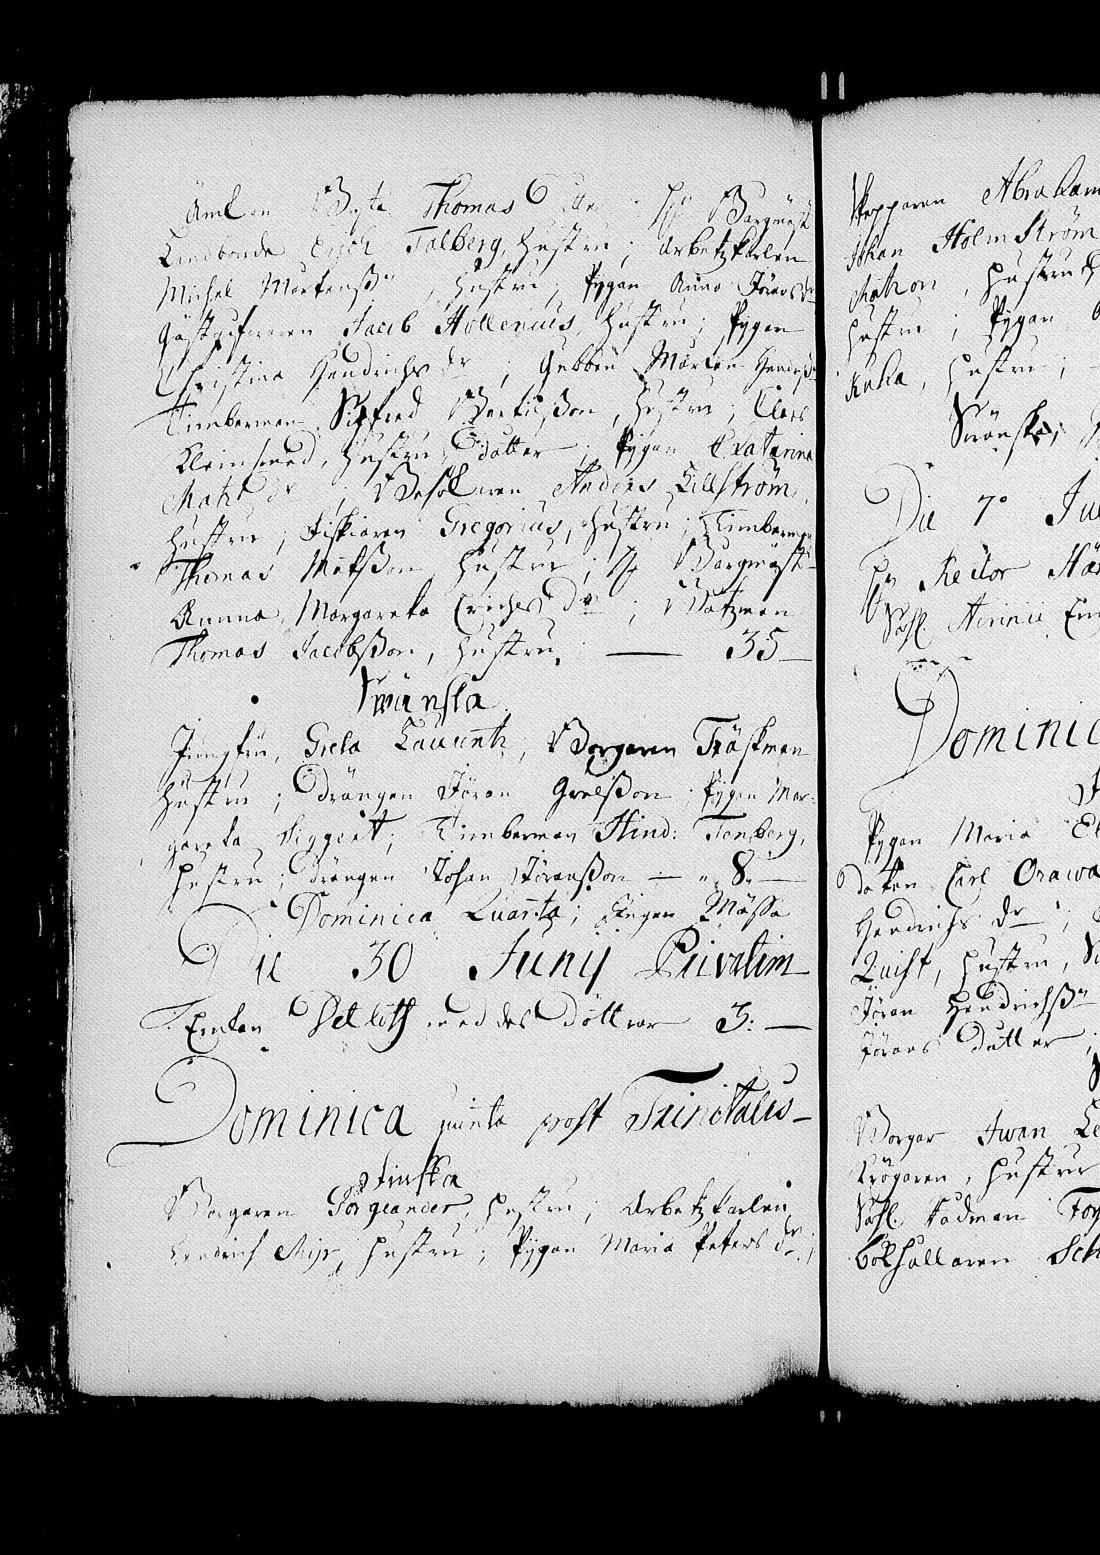 Thomas
Landbonde Erich Falberg, hustru; Arbetzkarlen
Michel Mårtenssn, hustru; Pygan Anna Jörans dr
Gästgifvaren Jacob Hollenius, hustru; Pygan
Christina Hendrichs dr; Gubben Mårten Hendrssn
Timberman Sigfred Bertilsson, hustru; Clas
Kleinsmed, hustru, Dotter; Pygan Catarina
Matz dr; Besökaren Anders Lillström,
hustru; Fiskiaren Gregorius, hustru; Timberman
Thomas Matsson, hustru;
Anna Margareta Erichs dr; Watzman
Thomas Jacobsson, hustru. — 35 —
Swänska.
Jungfru, Greta Laurentz; Borgaren Träskman
hustru; Drängen Jöran Grelsson; Pygan Mar-
gareta Siggert; Timberman Hind: Tenberg,
hustru; Drängen Johan Jöransson — 8. —
Dominica Quarta; Ingen Mässa
Die 30 Junij Privatim
Enkan Detloff med des döttrar 3: —
Dominica quinta post Trinitatis —
Finska
Borgaren Görgeander, hustru; Arbetzkarlen
Hendrich hustru; Pygan Maria Peters dr;
Skepparen Abraham
Johan Holmström
hustru
hustru; Pygan
Kuka, hustru;
Swänska;
Die 7º Jul
Hr Rector
Sahl.
Dominica
Pygan Maria El
Carl Orawa
Hendrichs dr;
Quist, hustru, S
Jöran Hendrichssn
Jörans Dotter;
Borgar Iwan Le
Krögaren, hustru
Sahl. Rådman
Bokhållaren Sch